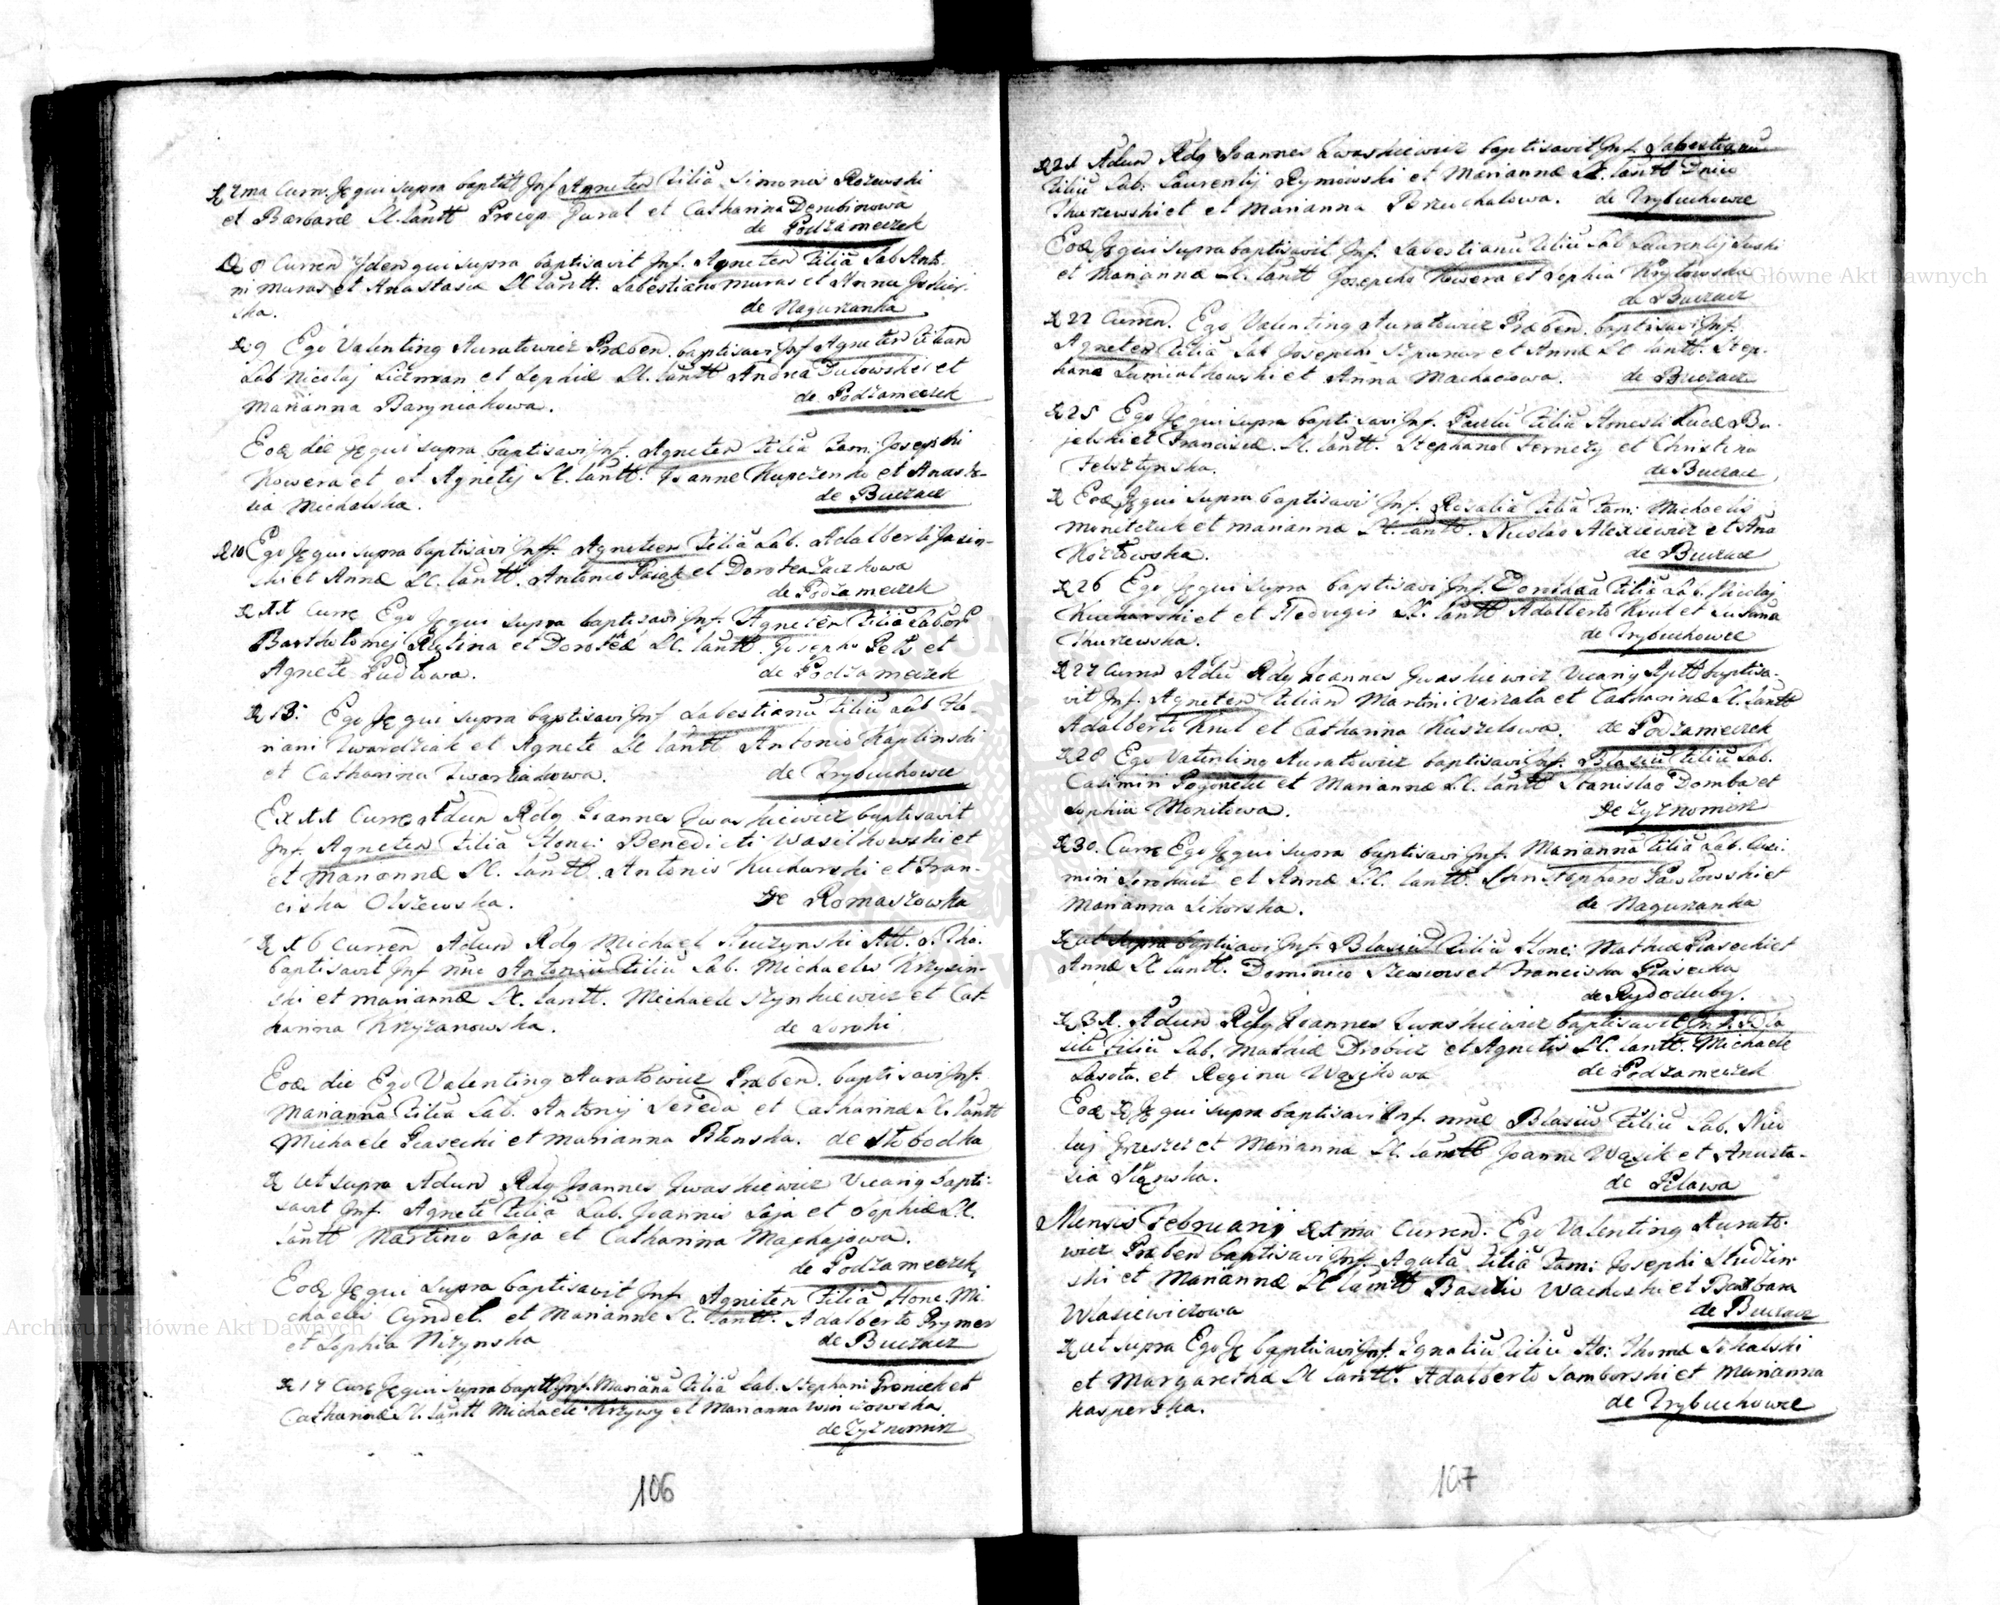 D 7ma Curr. Id qui supra baptit Inf Agneten Filiā Simonis Rozewski
et Barbaræ LC. Pantt Procop Jurał et Catharina Derubinowa
de Podzameczek
D 8 Curren Iden qui supra baptisavit Inf. Agneten Filiā Lab Anto-
ni Muras et Anastasia LC Pantt. Sabestiano Muras et Anna
ska.
de Nagurzanka
D 9 Ego Valenting Auratowicz Præbend. baptisavi Inf Agneten Filian
Lab Nicolaj Liczman et Sophiæ LC. Pantt Andrea Tutowski et
Marianna Baryniakowa.
de Podzameczek
Eod die Id qui supra baptisavi Inf. Agneten Filiā Fam: Josephi
Nowera et et Agnetij LC. Pantt. Joanne Kupczenko et Anasta-
sia Michalska.
de Buczacz
D 10 Ego Id qui supra baptisavi Inff. Agneten Filiā Lab. Adalberti Jasin-
ski et Annæ LC. Pantt. Antonio Paiąk et Dorotea Zaczkowa
de Podzameczek
D 11 Curre Ego Id qui supra baptisavi Inf. Agneten Filiā Labor
Bartholomej Rutina et Doroteæ LC. Pantt. Josepho Pets et
Agnete Pudłowa.
de Podzameczek
D 13. Ego Id qui supra baptisavi Inf Sabestianū Filiū Lab Flo-
riani Twardziak et Agnete LC Pantt Antonio Kaplinski
et Catharina Twarziakowa.
de Trybuchowce
Ex 11 Curre Adun Rdg Joannes Iwaskiewicz baptisavit
Inf. Agneten Filiā Hone: Benedicti Wasilkowski et
et Marianna LC. Pantt. Antonio Kucharski et Fran-
ciska Olszewska.
de Romaszowka
D 16 Curren Adun Rdg Michael Huczynski Alt. S. Tho.
baptisavit Inf nne Antoniū Filiū Lab. Michaelis Krzysin-
ski et Mariannæ LC. Pantt. Michaele Szynkiewicz et Cat-
harina Krzyzanowska.
de Soroki
Eod die Ego Valenting Auratowicz Præbend. baptisavi Inf.
Mariannā Filiā Lab. Antonij Sereda et Catharinæ LC. Pantt
Michaele Piasecki et Marianna Blenska. de Słobodka
D ut supra Adun Rdg Joannes Iwaskiewicz Vicarig bapti-
savit Inf. Agnetē Filiā Lab. Joannis Saja et Sophiæ LC.
Pantt Martino Saja et Catharina Machajowa.
de Podzameczek
Eod Id qui supra baptisavit Inf. Agneten Filiā Hone. Mi
chaelis Cyndel. et Marianne LC. Pantt. Adalberto Prymer
et Sophia Nizynska
de Buczacz
D 17 Curr Id qui supra baptt Inf. Marianā Filiā Lab. Stephani Proniek et
Catharinæ LC. Pantt Michaele Krzywy et Marianna Winiowska
de Zyznomirz
106
D 21 Adun Rdg Joannes Iwaskiewicz baptisavit Inf. Sabestianū
Filiū Lab. Laurentij Rymowski et Mariannæ LC. Pantt Dnico
Churzewski et et Marianna Brzuchalowa. de Trybuchowce
Eod Id qui supra baptisavit Inf. Sabestianū Filiū Lab Laurentij Suski
et Mariannæ LC. Pantt Josepho Nowera et Sophia Krytowska
de Buczacz
D 22 Curren. Ego Valenting Auratowicz Præbend. baptisavi Inf.
Agneten Filiā Lab Josephi Szpunar et Annæ LC. Pantt. Step-
hano Lumiatkowski et Anna Machaczowa. de Buczacz
D 25 Ego Id qui supra baptisavi Inf. Paulū Filiū Honesti Lucæ Bu-
jelski et Franciscæ LC. Pantt. Stephano Fernezy et Christina
Felsztynska.
de Buczacz
D Eod Id qui supra baptisavi Inf. Rosaliā Filiā Fam: Michaelis
Monitczuk et Mariannæ LC. Pantt. Nicolao Alexiewicz et Ana
Kozłowska.
de Buczacz
D 26 Ego Id qui supra baptisavi Inf. Dorotheā Filiā Lab. Nicolaj
Kucharski et et Hedvigis LC. Pantt Adalberto Knul et Zuzana
Churzewska.
de Trybuchowce
D 27 Curren Adū Rdg Joannes Iwaskiewicz Vicarig Aptt baptisa-
vit Inf. Agneten Filian Martini Warzala et Catharinæ LC. Pantt
Adalberto Knul et Catharina Kuszelowa. de Podzameczek
D 28 Ego Valenting Auratowicz baptisavi Inf. Blasiū Filiū Lab.
Casimiri Pogonetel et Mariannæ LC. Pantt Stanislao Domba et
Sophia Monitowa.
de Zyznomirz
D 30. Curre Ego Id qui supra baptisavi Inf. Mariannā Filiā Lab. Casi-
miri Sorokacz et Annæ LC. Pantt. Christophoro Pawłowski et
Marianna Sikorska.
de Nagurzanka
D ut supra baptisavi Inf. Blasiū Filiū Hone: Mathiæ Piasecki et
Annæ LC Pantt. Dominico et Franciska Piasecka
de Rydoduby.
D 31. Adun Rdg Joannes Iwaskiewicz baptisavit Inf. Bla
siū Filiū Lab. Mathiæ Drobicz et Agnetis LC. Pantt. Michaele
Lasota. et Regina Wasikowa
de Podzameczek
Eod D Id qui supra baptisavi Inf. nne Blasiū Filiū Lab. Nico
laj Greszcz et Marianna LC. Pantt Joanne Wąsik et Anasta-
sia
de Pilawa
Mensis Februarij D 1ma Curren. Ego Valenting Aurato-
wicz Præben baptisavi Inf. Agatā Filiā Fam: Josephi Studzin-
ski et Mariannæ LC Pantt Basilio Wachoski et Barbara
Wlasiewiczowa
de Buczacz
D ut supra Ego Id baptisavi Inf. Ignatiū Filiū Ho: Thomæ Sokalski
et Margarethæ LC Pantt. Adalberto Samborski et Marianna
Kasperska.
de Trybuchowce
107
Archiwum Główne Akt Dawnych
Archiwum Główne Akt Dawnych